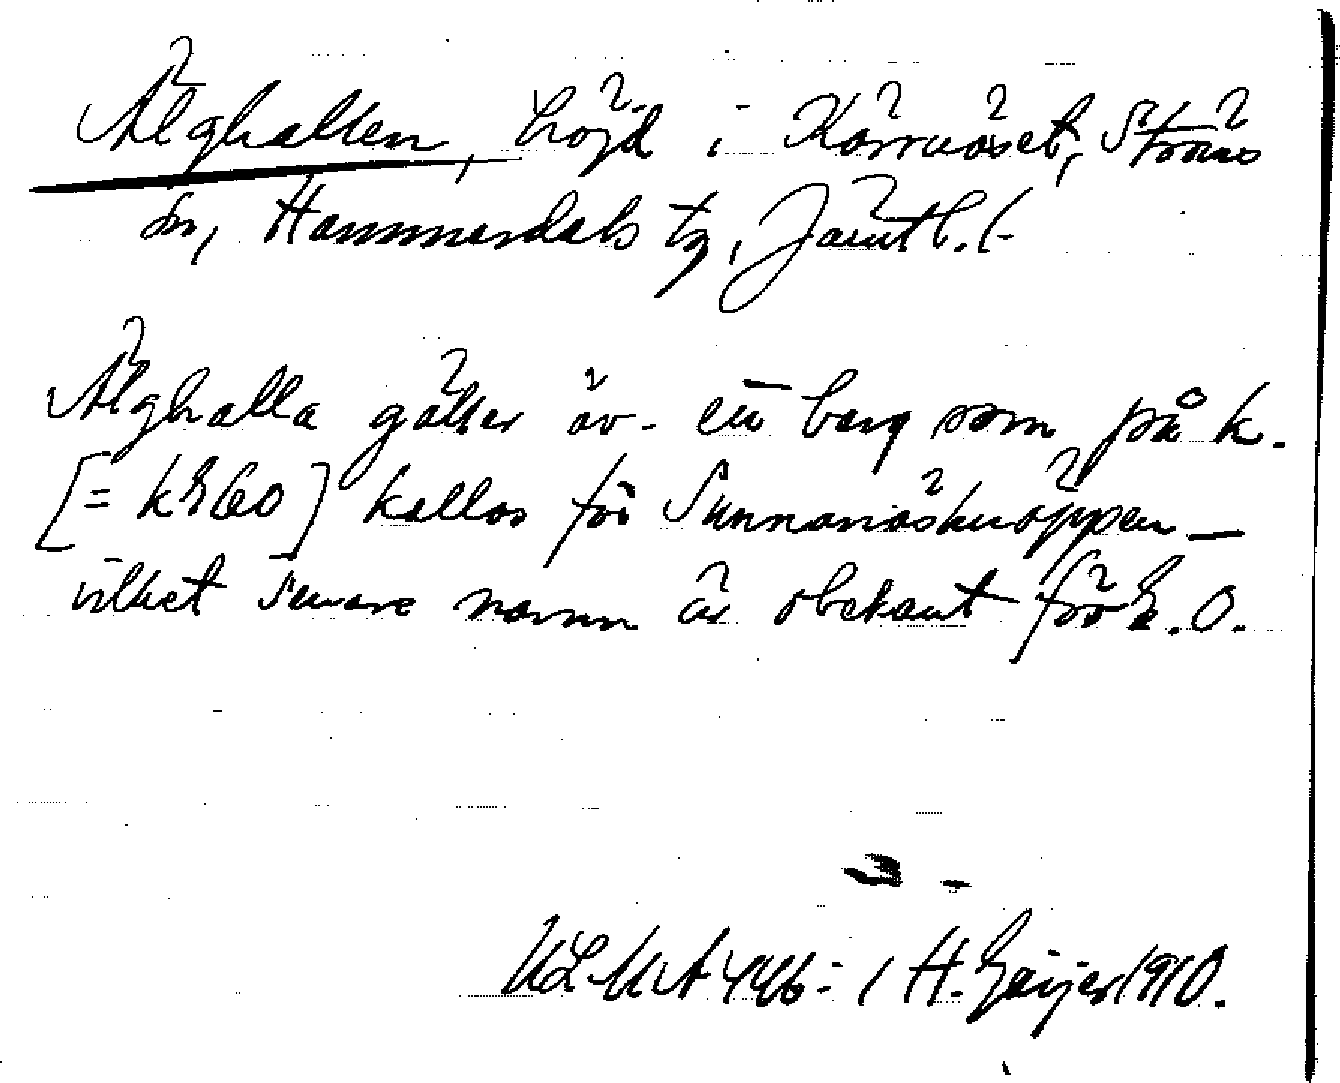 Älghallen, höjd i Kärrnäset, Ströms
sn, Hammerdals tg, Jämtl. l.
Älghalla gäller äv. ett berg som på k.
[= kr 60] kallas för Sunnanäsknöppen –
vilket senare namn är obekant för E. O.
ULMA 446:1 H. Geijer 1910.